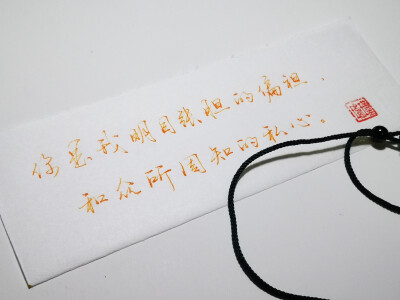 你是我明目张胆的偏袒，
和众所周知的私心。